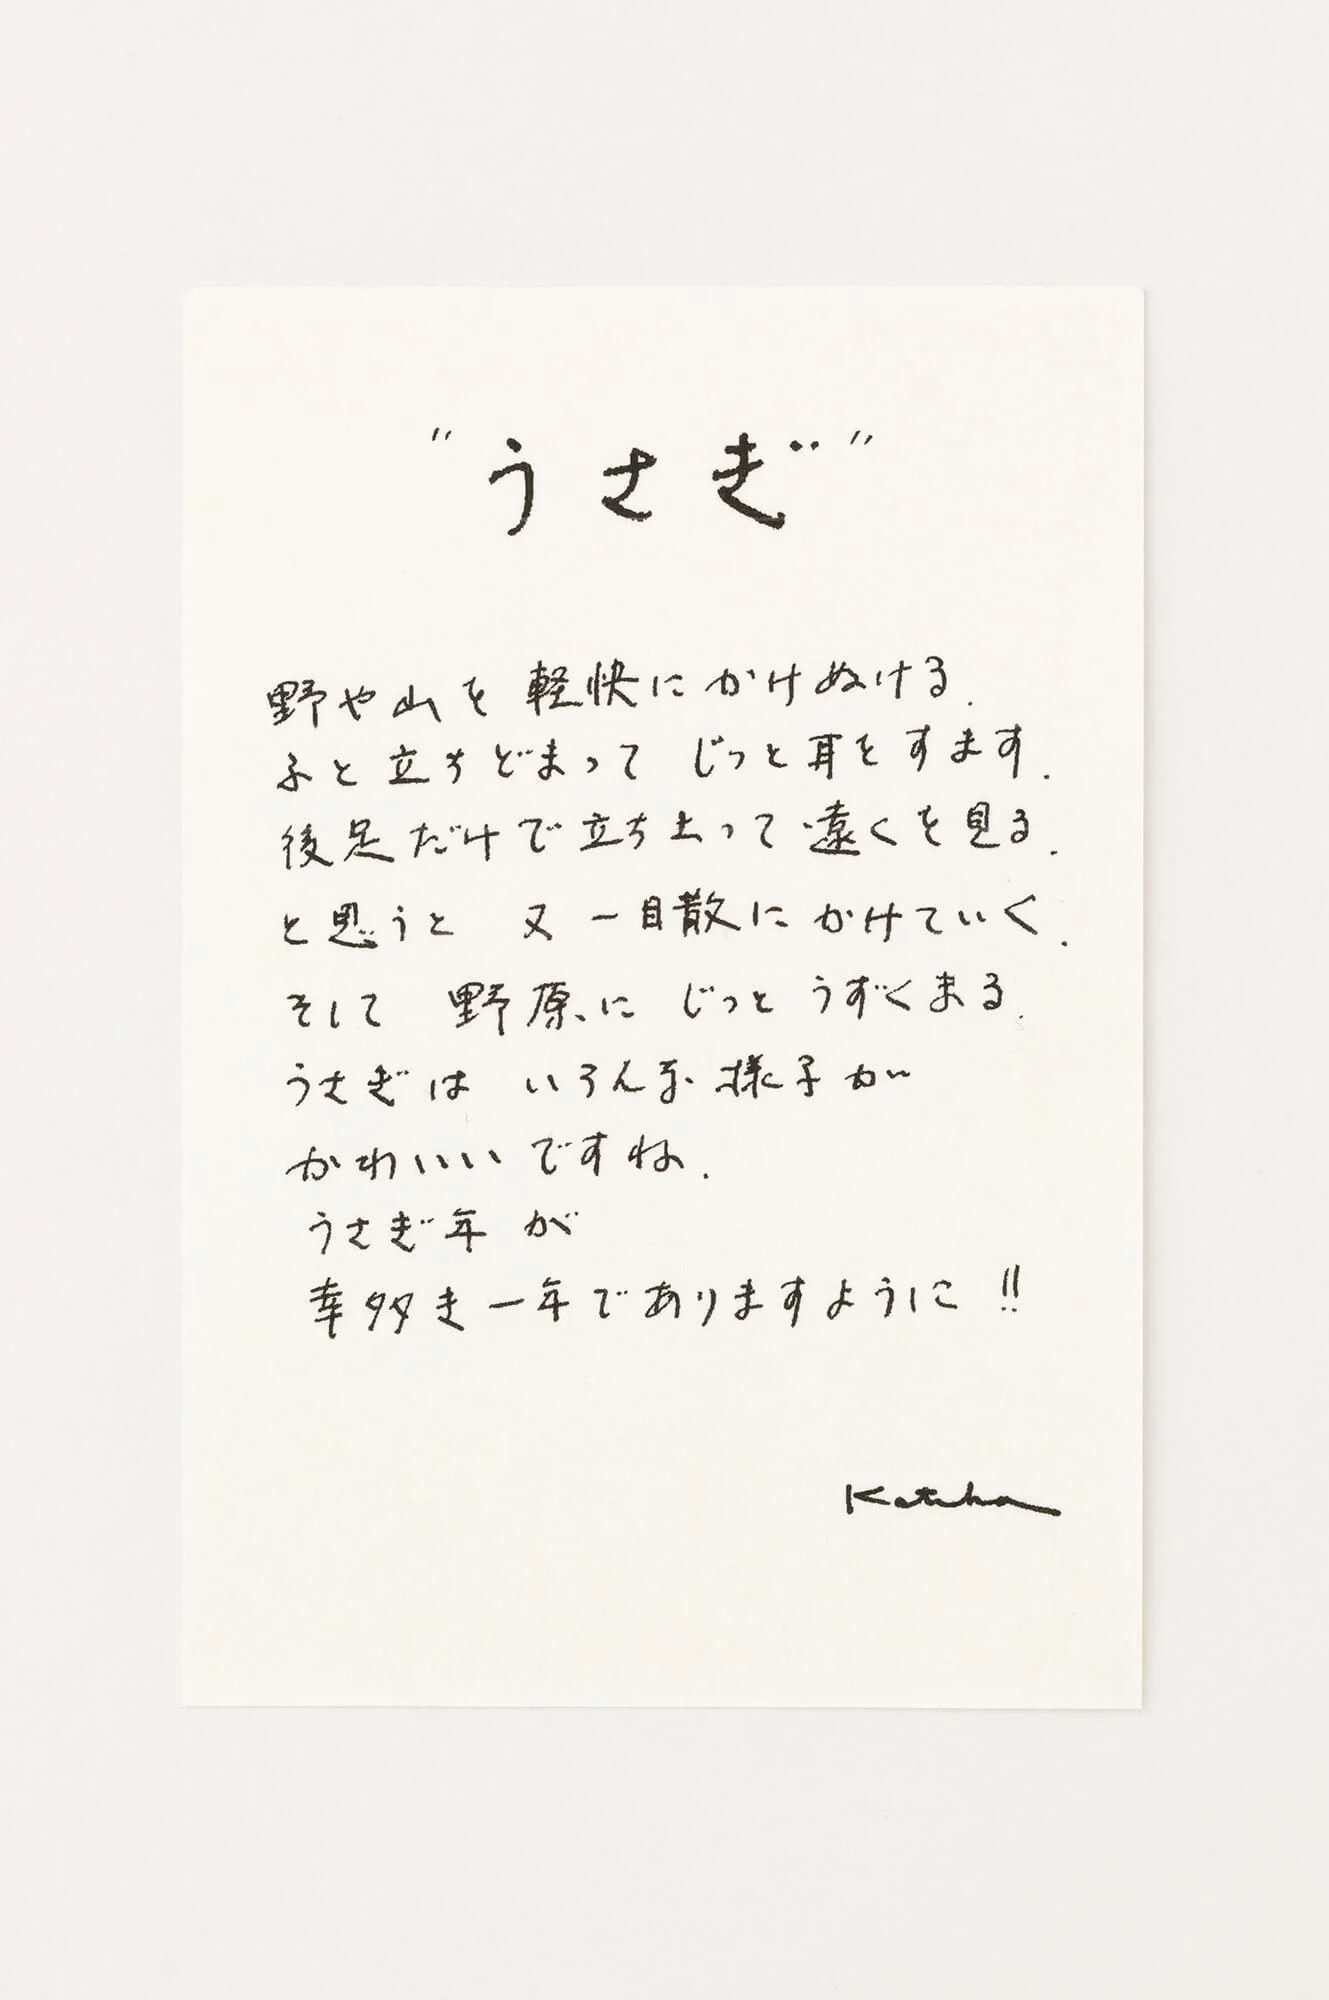 "うさぎ"
野や山を 軽快に かけぬける.
ふと 立ちどまって じっと 耳を すます.
後足だけで 立ち上って 遠くを 見る.
と思うと 又 一目散に かけていく.
そして 野原に じっと うずくまる.
うさぎは いろんな 様子が
かわいい ですね.
うさぎ年 が
幸多き 一年で ありますように!!